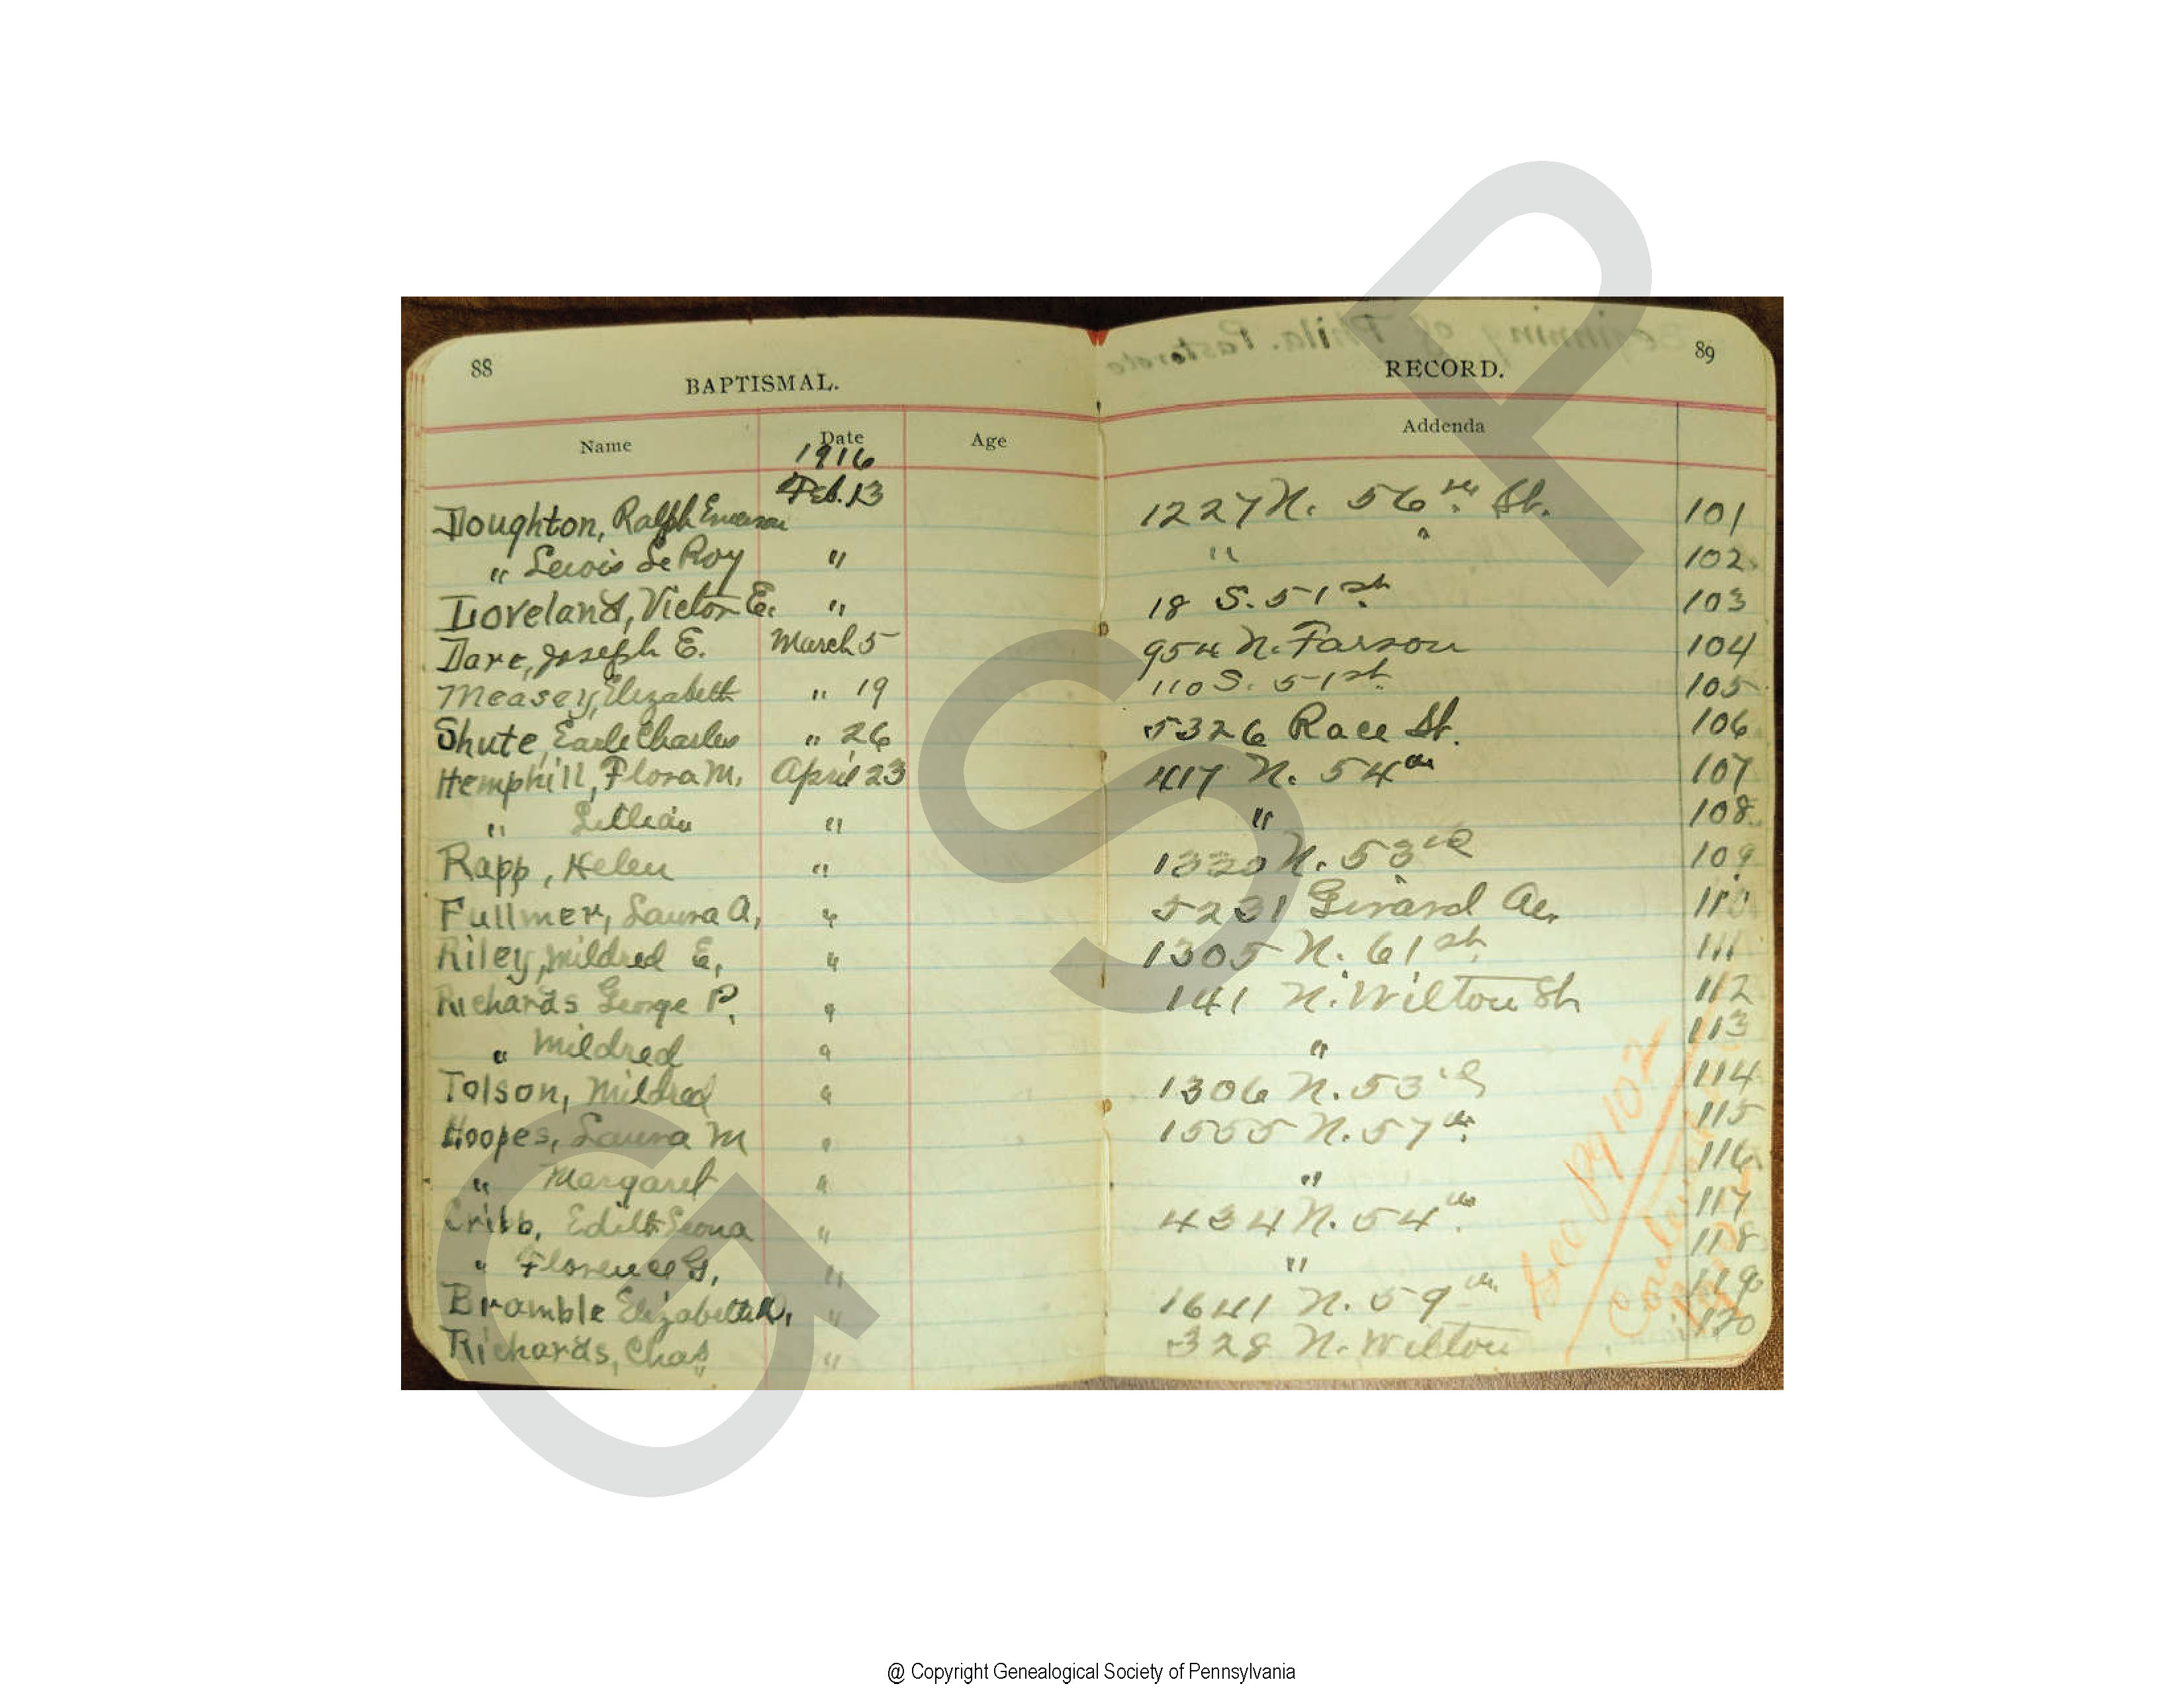 88
BAPTISMAL.
Name Date Age
1916
Feb. 13
Doughton, Ralph Emerson
" Lewis LeRoy "
Loveland, Victor E. "
Dare, Joseph E. March 5
Measey, Elizabeth " 19
Shute, Earle Charles " 26
Hemphill, Flora M. April 23
" Lillian "
Rapp, Helen "
Fullmer, Laura A, "
Riley, Mildred E, "
Richards George P. "
" Mildred "
Tolson, Mildred "
Hoopes, Laura M "
" Margaret "
Cribb, Edith Leona "
" Florence G, "
Bramble Elizabeth "
Richards, Chas "
Beginning of Phila. Pastorate
89
RECORD.
Addenda
1227 N. 56th St. 101
" " 102
18 S. 51st 103
954 N. Farson 104
110 S. 51st 105
5326 Race St. 106
417 N. 54th 107
" 108
1330 N. 53rd 109
5231 Girard Ae. 110
1305 N. 61st 111
141 N. Wilton St 112
" 113
1306 N. 53rd 114
1555 N. 57th 115
" 116
434 N. 54th 117
" 118
1641 N. 59th 119
328 N. Wilton 120
See pg 102
GSP
@ Copyright Genealogical Society of Pennsylvania